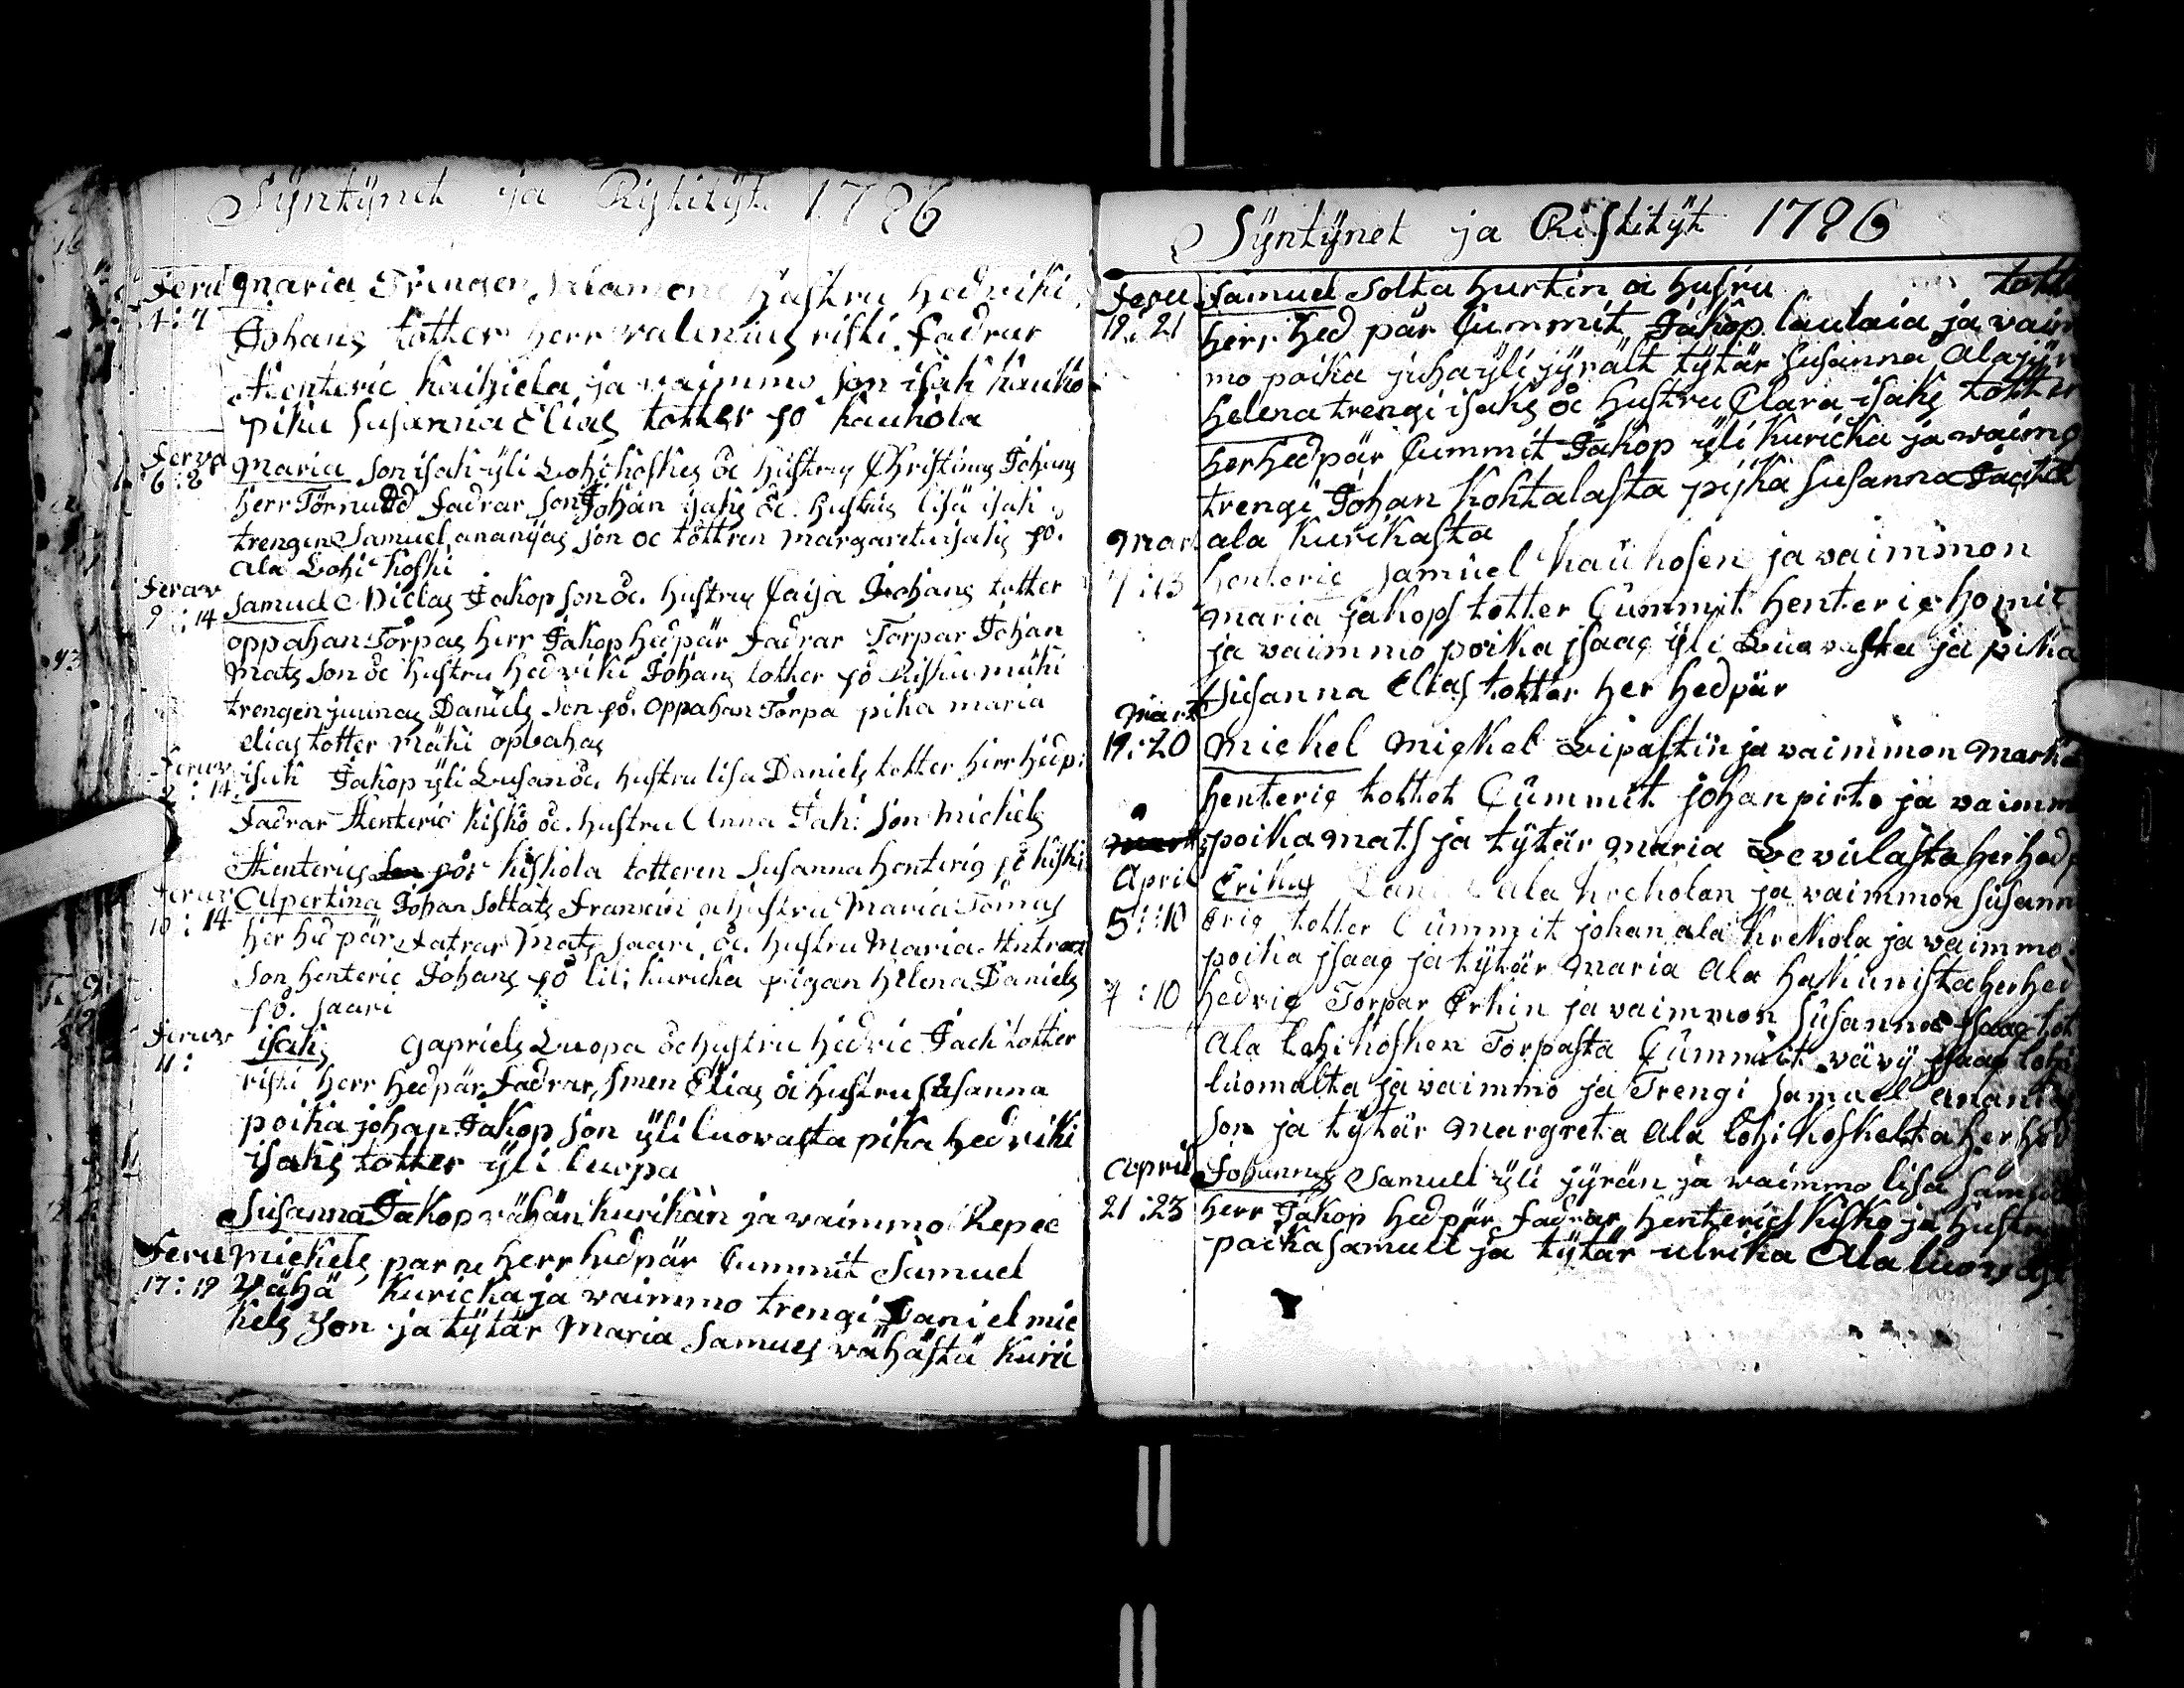 Syntynet ja Ristityt 1786
Feru maria Trengen Salamons hustru hedviki
4:7 Johans totter herr valenius risti fadrar
Henteric kaihiela ja vaimmo son isak kauko
pika Susanna Elias totter po kauhola
Feruv maria son isak yli Lohikoskes oc hustrus Christinas Johans
6:8 herr Törnudd Fadrar son Johan isaks oc. hustrus lisa isak
trengen Samuel ananias son oc tottren margareta isaks på.
ala Lohikoski
Feruv Samuel Niclas Jakop son oc. hustrus Caisa Johans totter
9:14 oppahan Torpas herr Jakop hedpär Fadrar Torpar Johan
mats son oc hustru hedviki Johans totter på mäki
trengen juunas Daniels son på. oppahan Torpa pika maria
elias totter mäki opbahas
Feruv isak Jakop yli Lusan oc. hustru lisa Daniels totter herr hedp:
:14 Fadrar Henteric kisko oc. hustru Anna Jak: son mickels
Henterics på: kiskola totteren Susanna henterig på kiski
Feruv Alpertina Johan soltats Franskin oc hustru Maria Tomas
10:14 her hedpär Fatrar mats saari oc. hustru Maria Antreas
son henteric Johans på lil: kuricka pigan helena Daniels
på. saari
Feruv isak gapriels Luopa oc hustru hedvic Jack totter
11: risti herr hedpär Fadrar, smen Elias oc hustru Susanna
poika johan Jakop son yli luovasta pika hedviki
isaks totter yli luopa
Susanna Jakop vähän kurikan ja vaimmo Repec
Feru mickels parn herr hedpär Cummit Samuel
17:19 vähä kuricka ja vaimmo trengi Daniel mic
kels son ja tytär Maria Samuels vähästä kuri
Syntynet ja Ristityt 1786
Feru Samuel solta hurtin oc husru totte
19:21 herr hed pär Cummit Jakop lautaia ja vaim
mo poika juha yli jyrält tytär Susanna Ala jyr
helena trengi isaks oc hustru Clara isaks totter
her hedpär Cummit Jakop yli kuricka ja vaimo
trengi Johan kohtalasta pijka Susanna
mar ala kurikasta
7:13 henteric Samuel kaukosen ja vaimmon
maria jakops totter Cummit henteric homit
ja vaimmo poika jsaac yli Luovasta ja pika
Susanna Elias totter her hedpär
mart
19:20 mickel mickel Lipastin ja vaimmon marke
henteric tottet Cummit johan pirto ja vaimm
poika mats ja tytär maria Levulasta her hedp
April Erikus ala krekolan ja vaimmon Susann
5:10 Eric totter Cummit johan ala krekola ja vaimmo
poika jsaac ja tytär maria Ala hakunista her hed
7:10 hedvig Torpar Erkin ja vaimmon Susanna jsaac tot
Ala lohikosken Torpasta Cummit vävy jsaac lohi
luomalta ja vaimmo ja Trengi Samuel anania
son ja tytär margreta Ala lohikoskelta her hed
April Johannes Samuel yli jyrän ja vaimmo lisa samue
21:23 herr Jakop hedpär Fadrar henterics kisko ja hustr
poika samuel ja tytär ulrika Ala luovast